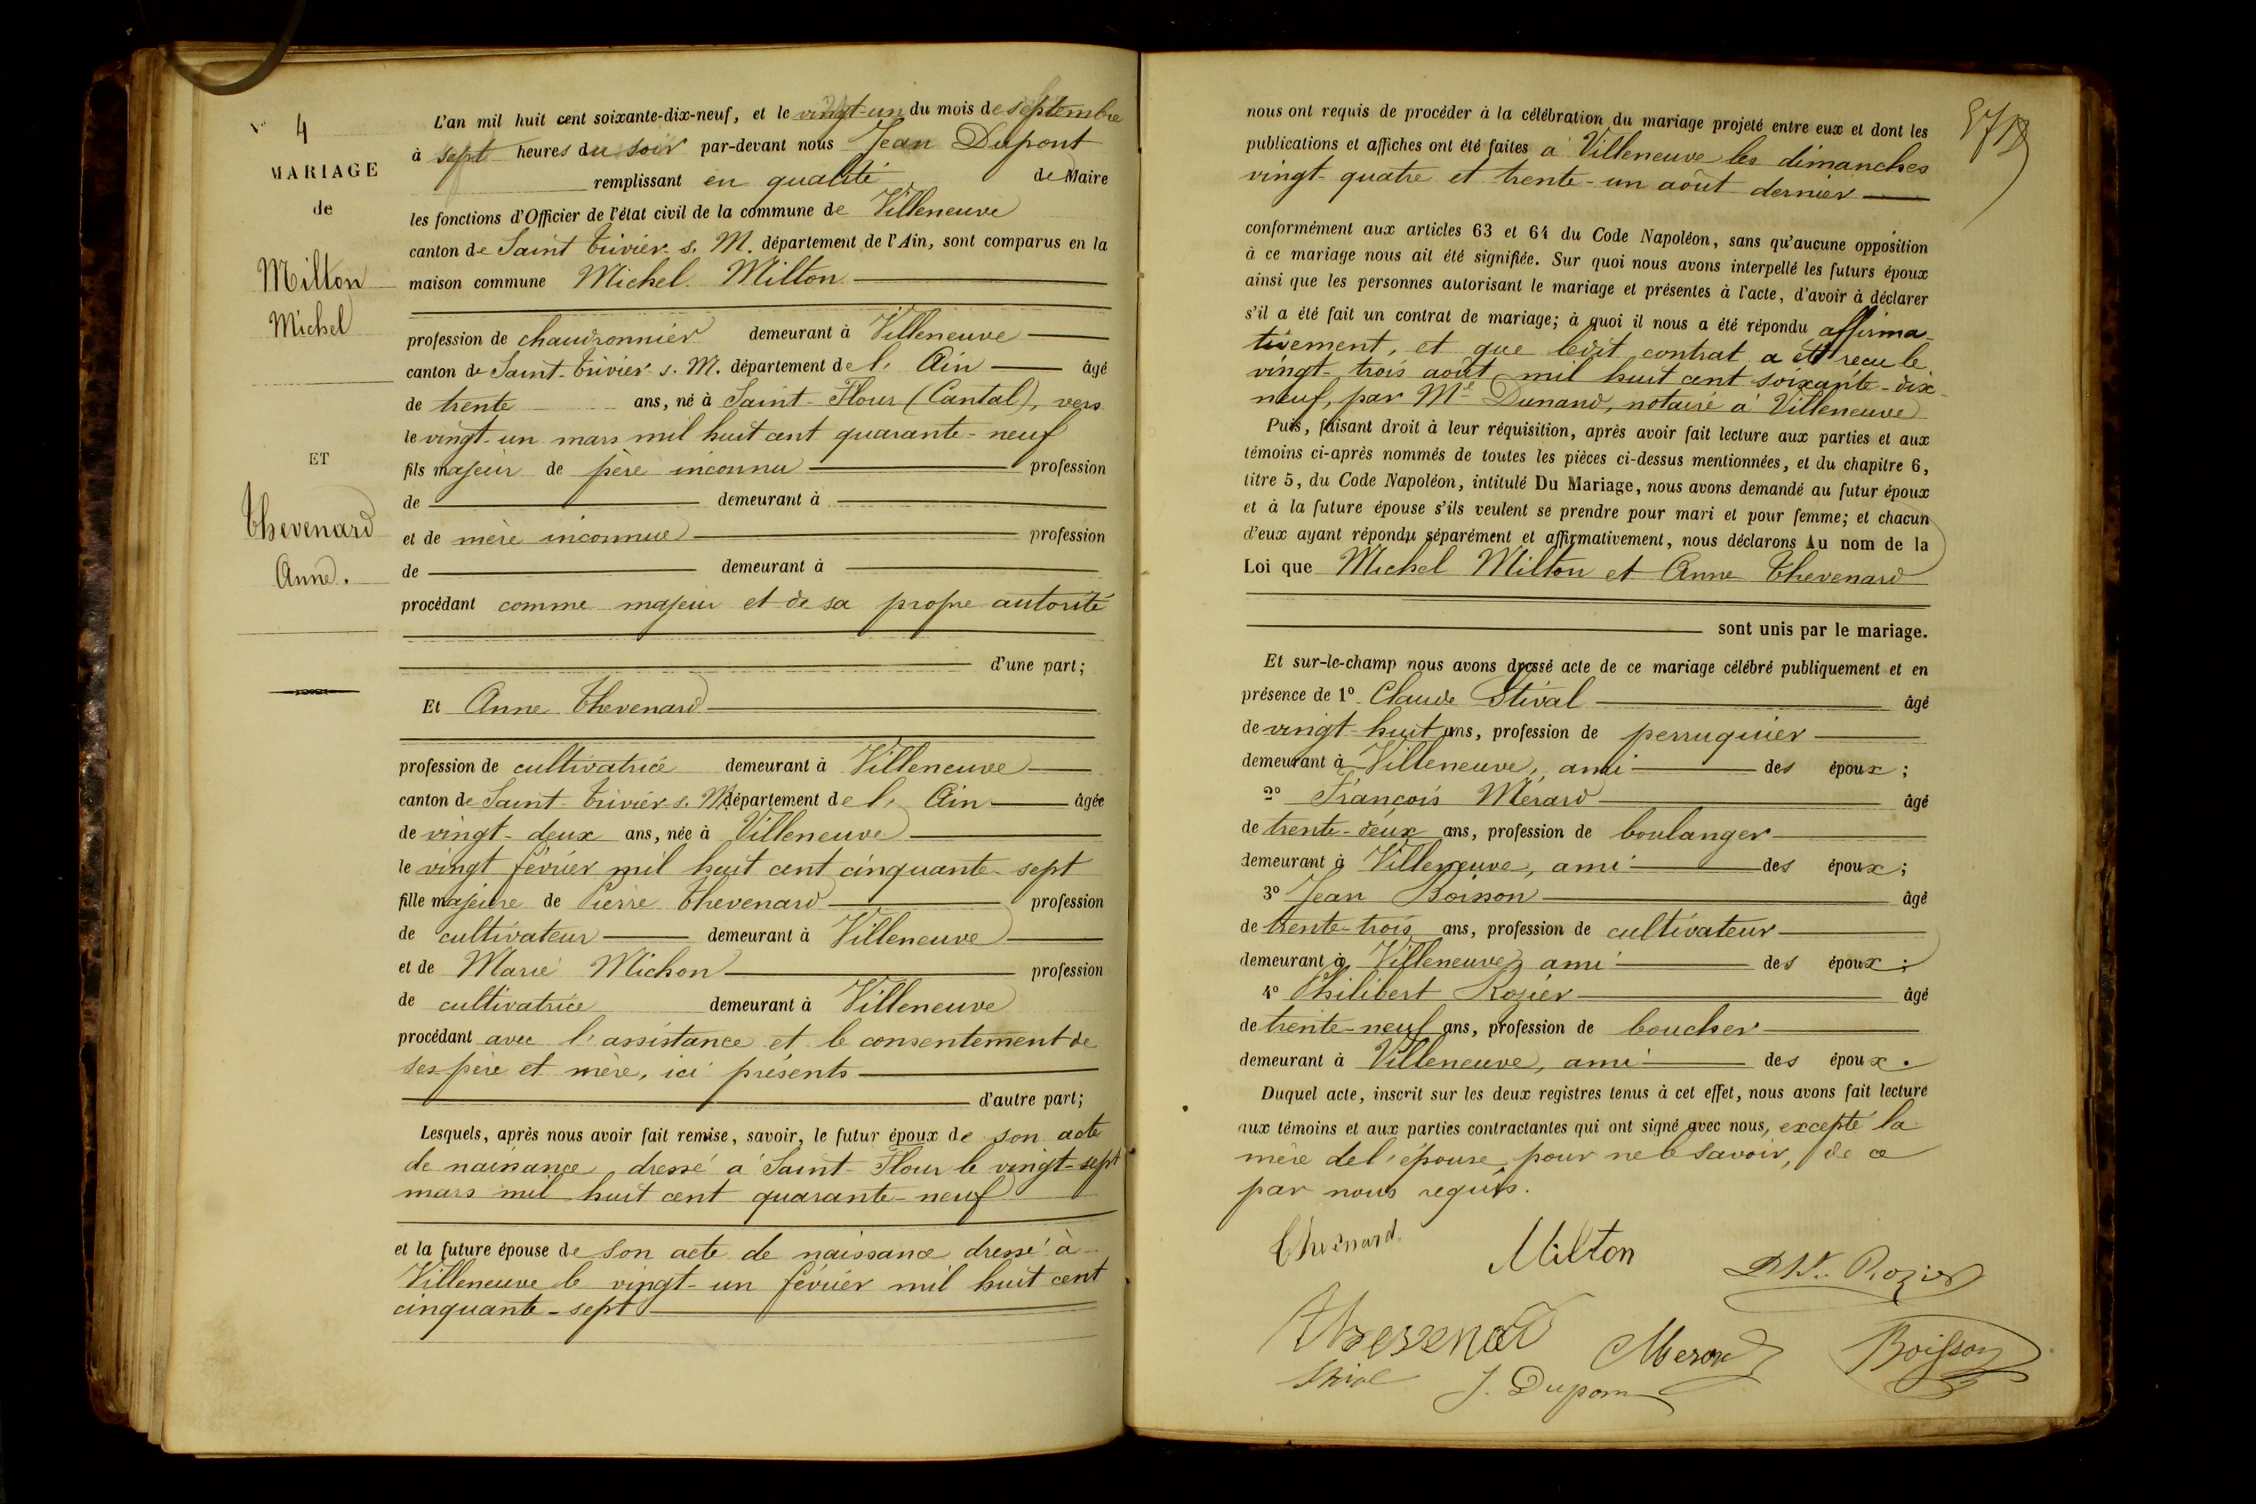 N° 4
MARIAGE
de
Milton
Michel
ET
Thevenard
Anne.
L'an mil huit cent soixante-dix-neuf, et le vingt-un du mois de septembre
à sept heures du soir par-devant nous Jean Dupont
remplissant en qualité de Maire
les fonctions d'Officier de l'état civil de la commune de Villeneuve
canton de Saint Trivier s. M. département de l'Ain, sont comparus en la
maison commune Michel Milton
profession de chaudronnier demeurant à Villeneuve
canton de Saint-Trivier s. M. département de l'Ain âgé
de trente ans, né à Saint-Flour (Cantal), vers
le vingt-un mars mil huit cent quarante-neuf
fils majeur de père inconnu profession
de demeurant à
et de mère inconnue profession
de demeurant à
procédant comme majeur et de sa propre autorité
d'une part;
Et Anne Thevenard
profession de cultivatrice demeurant à Villeneuve
canton de Saint-Trivier s. M. département de l'Ain âgée
de vingt-deux ans, née à Villeneuve
le vingt février mil huit cent cinquante-sept
fille majeure de Pierre Thevenard profession
de cultivateur demeurant à Villeneuve
et de Marie Michon profession
de cultivatrice demeurant à Villeneuve
procédant avec l'assistance et le consentement de
ses père et mère, ici présents
d'autre part;
Lesquels, après nous avoir fait remise, savoir, le futur époux de son acte
de naissance dressé à Saint-Flour le vingt-sept
mars mil huit cent quarante-neuf
et la future épouse de son acte de naissance dressé à
Villeneuve le vingt-un février mil huit cent
cinquante-sept
nous ont requis de procéder à la célébration du mariage projeté entre eux et dont les
publications et affiches ont été faites à Villeneuve les dimanches
vingt-quatre et trente-un août dernier
conformément aux articles 63 et 64 du Code Napoléon, sans qu'aucune opposition
à ce mariage nous ait été signifiée. Sur quoi nous avons interpellé les futurs époux
ainsi que les personnes autorisant le mariage et présentes à l'acte, d'avoir à déclarer
s'il a été fait un contrat de mariage; à quoi il nous a été répondu affirma-
tivement, et que ledit contrat a été reçu le
vingt-trois août mil huit cent soixante-dix-
neuf, par Me Dunand, notaire à Villeneuve
Puis, faisant droit à leur réquisition, après avoir fait lecture aux parties et aux
témoins ci-après nommés de toutes les pièces ci-dessus mentionnées, et du chapitre 6,
titre 5, du Code Napoléon, intitulé Du Mariage, nous avons demandé au futur époux
et à la future épouse s'ils veulent se prendre pour mari et pour femme; et chacun
d'eux ayant répondu séparément et affirmativement, nous déclarons Au nom de la
Loi que Michel Milton et Anne Thevenard
sont unis par le mariage.
Et sur-le-champ nous avons dressé acte de ce mariage célébré publiquement et en
présence de 1° Claude Stival âgé
de vingt-huit ans, profession de perruquier
demeurant à Villeneuve, ami des époux;
2° François Mérard âgé
de trente-deux ans, profession de boulanger
demeurant à Villeneuve, ami des époux;
3° Jean Boisson âgé
de trente-trois ans, profession de cultivateur
demeurant à Villeneuve, ami des époux;
4° Philibert Rozier âgé
de trente-neuf ans, profession de boucher
demeurant à Villeneuve, ami des époux.
Duquel acte, inscrit sur les deux registres tenus à cet effet, nous avons fait lecture
aux témoins et aux parties contractantes qui ont signé avec nous, excepté la
mère de l'épouse, pour ne le savoir, de ce
par nous requis.
Milton
Rozier
Boisson
J. Dupont